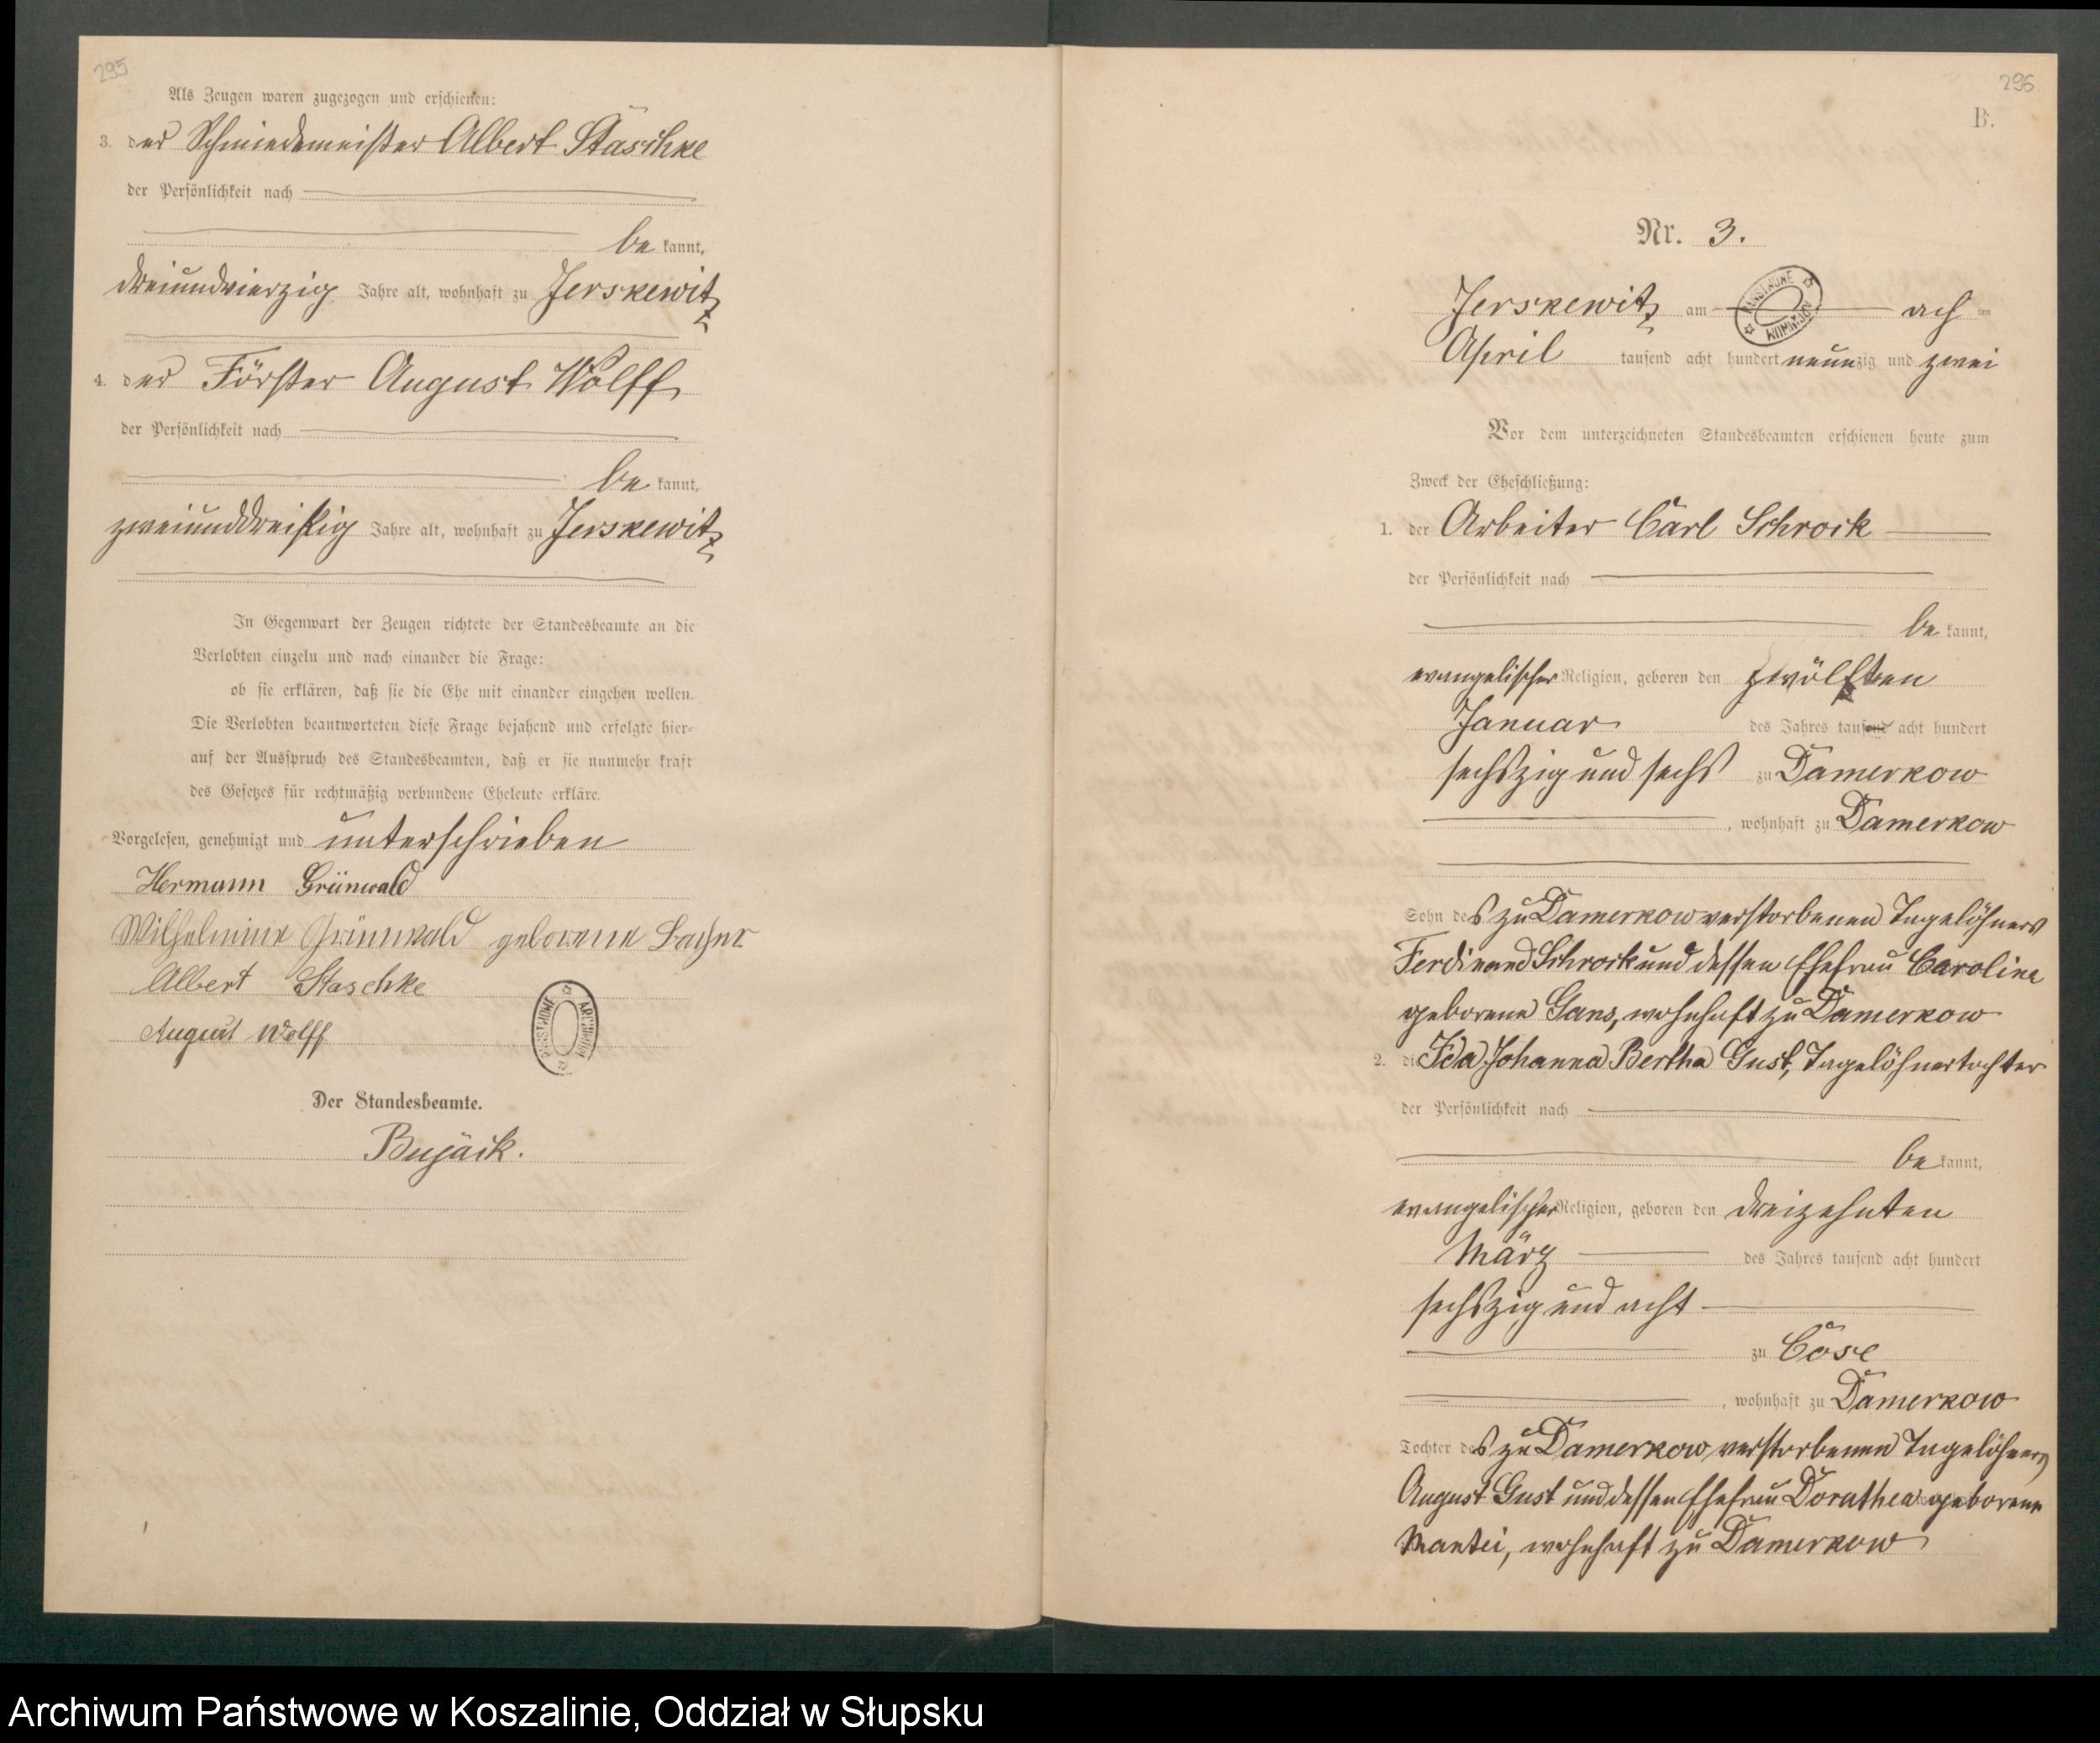 295
Als Zeugen waren zugezogen und erschienen:
3. der Schmiedemeister Albert Staschke
der Persönlichkeit nach
be kannt,
dreiundvierzig Jahre alt, wohnhaft zu Jerskewitz
4. der Förster August Wolff
der Persönlichkeit nach
be kannt,
zweiunddreißig Jahre alt, wohnhaft zu Jerskewitz
In Gegenwart der Zeugen richtete der Standesbeamte an die
Verlobten einzeln und nach einander die Frage:
ob sie erklären, daß sie die Ehe mit einander eingehen wollen.
Die Verlobten beantworteten diese Frage bejahend und erfolgte hier-
auf der Ausspruch des Standesbeamten, daß er sie nunmehr kraft
des Gesetzes für rechtmäßig verbundene Eheleute erkläre.
Vorgelesen, genehmigt und unterschrieben
Hermann Grünwald
Wilhelmine Grünwald geborene
Albert Staschke
August Wolff
ARCHIWUM PAŃSTWOWE
Der Standesbeamte.
Bujack.
296
B.
Nr. 3.
Jerskewitz am achten
ARCHIWUM PAŃSTWOWE
April tausend acht hundert neunzig und zwei
Vor dem unterzeichneten Standesbeamten erschienen heute zum
Zweck der Eheschließung:
1. der Arbeiter Carl Schrock
der Persönlichkeit nach
be kannt,
evangelischer Religion, geboren den zwölften
Januar des Jahres tausend acht hundert
sechszig und sechs zu Damerkow
, wohnhaft zu Damerkow
Sohn des zu Damerkow verstorbenen Tagelöhners
Ferdinand Schrock und dessen Ehefrau Caroline
geborene Gans, wohnhaft zu Damerkow
2. die Ida Johanna Bertha Gust, Tagelöhnertochter
der Persönlichkeit nach
be kannt,
evangelischer Religion, geboren den dreizehnten
März des Jahres tausend acht hundert
sechszig und acht
zu Cose
, wohnhaft zu Damerkow
Tochter des zu Damerkow verstorbenen Tagelöhners
August Gust und dessen Ehefrau Dorathea geborene
Mantei, wohnhaft zu Damerkow
Archiwum Państwowe w Koszalinie, Oddział w Słupsku